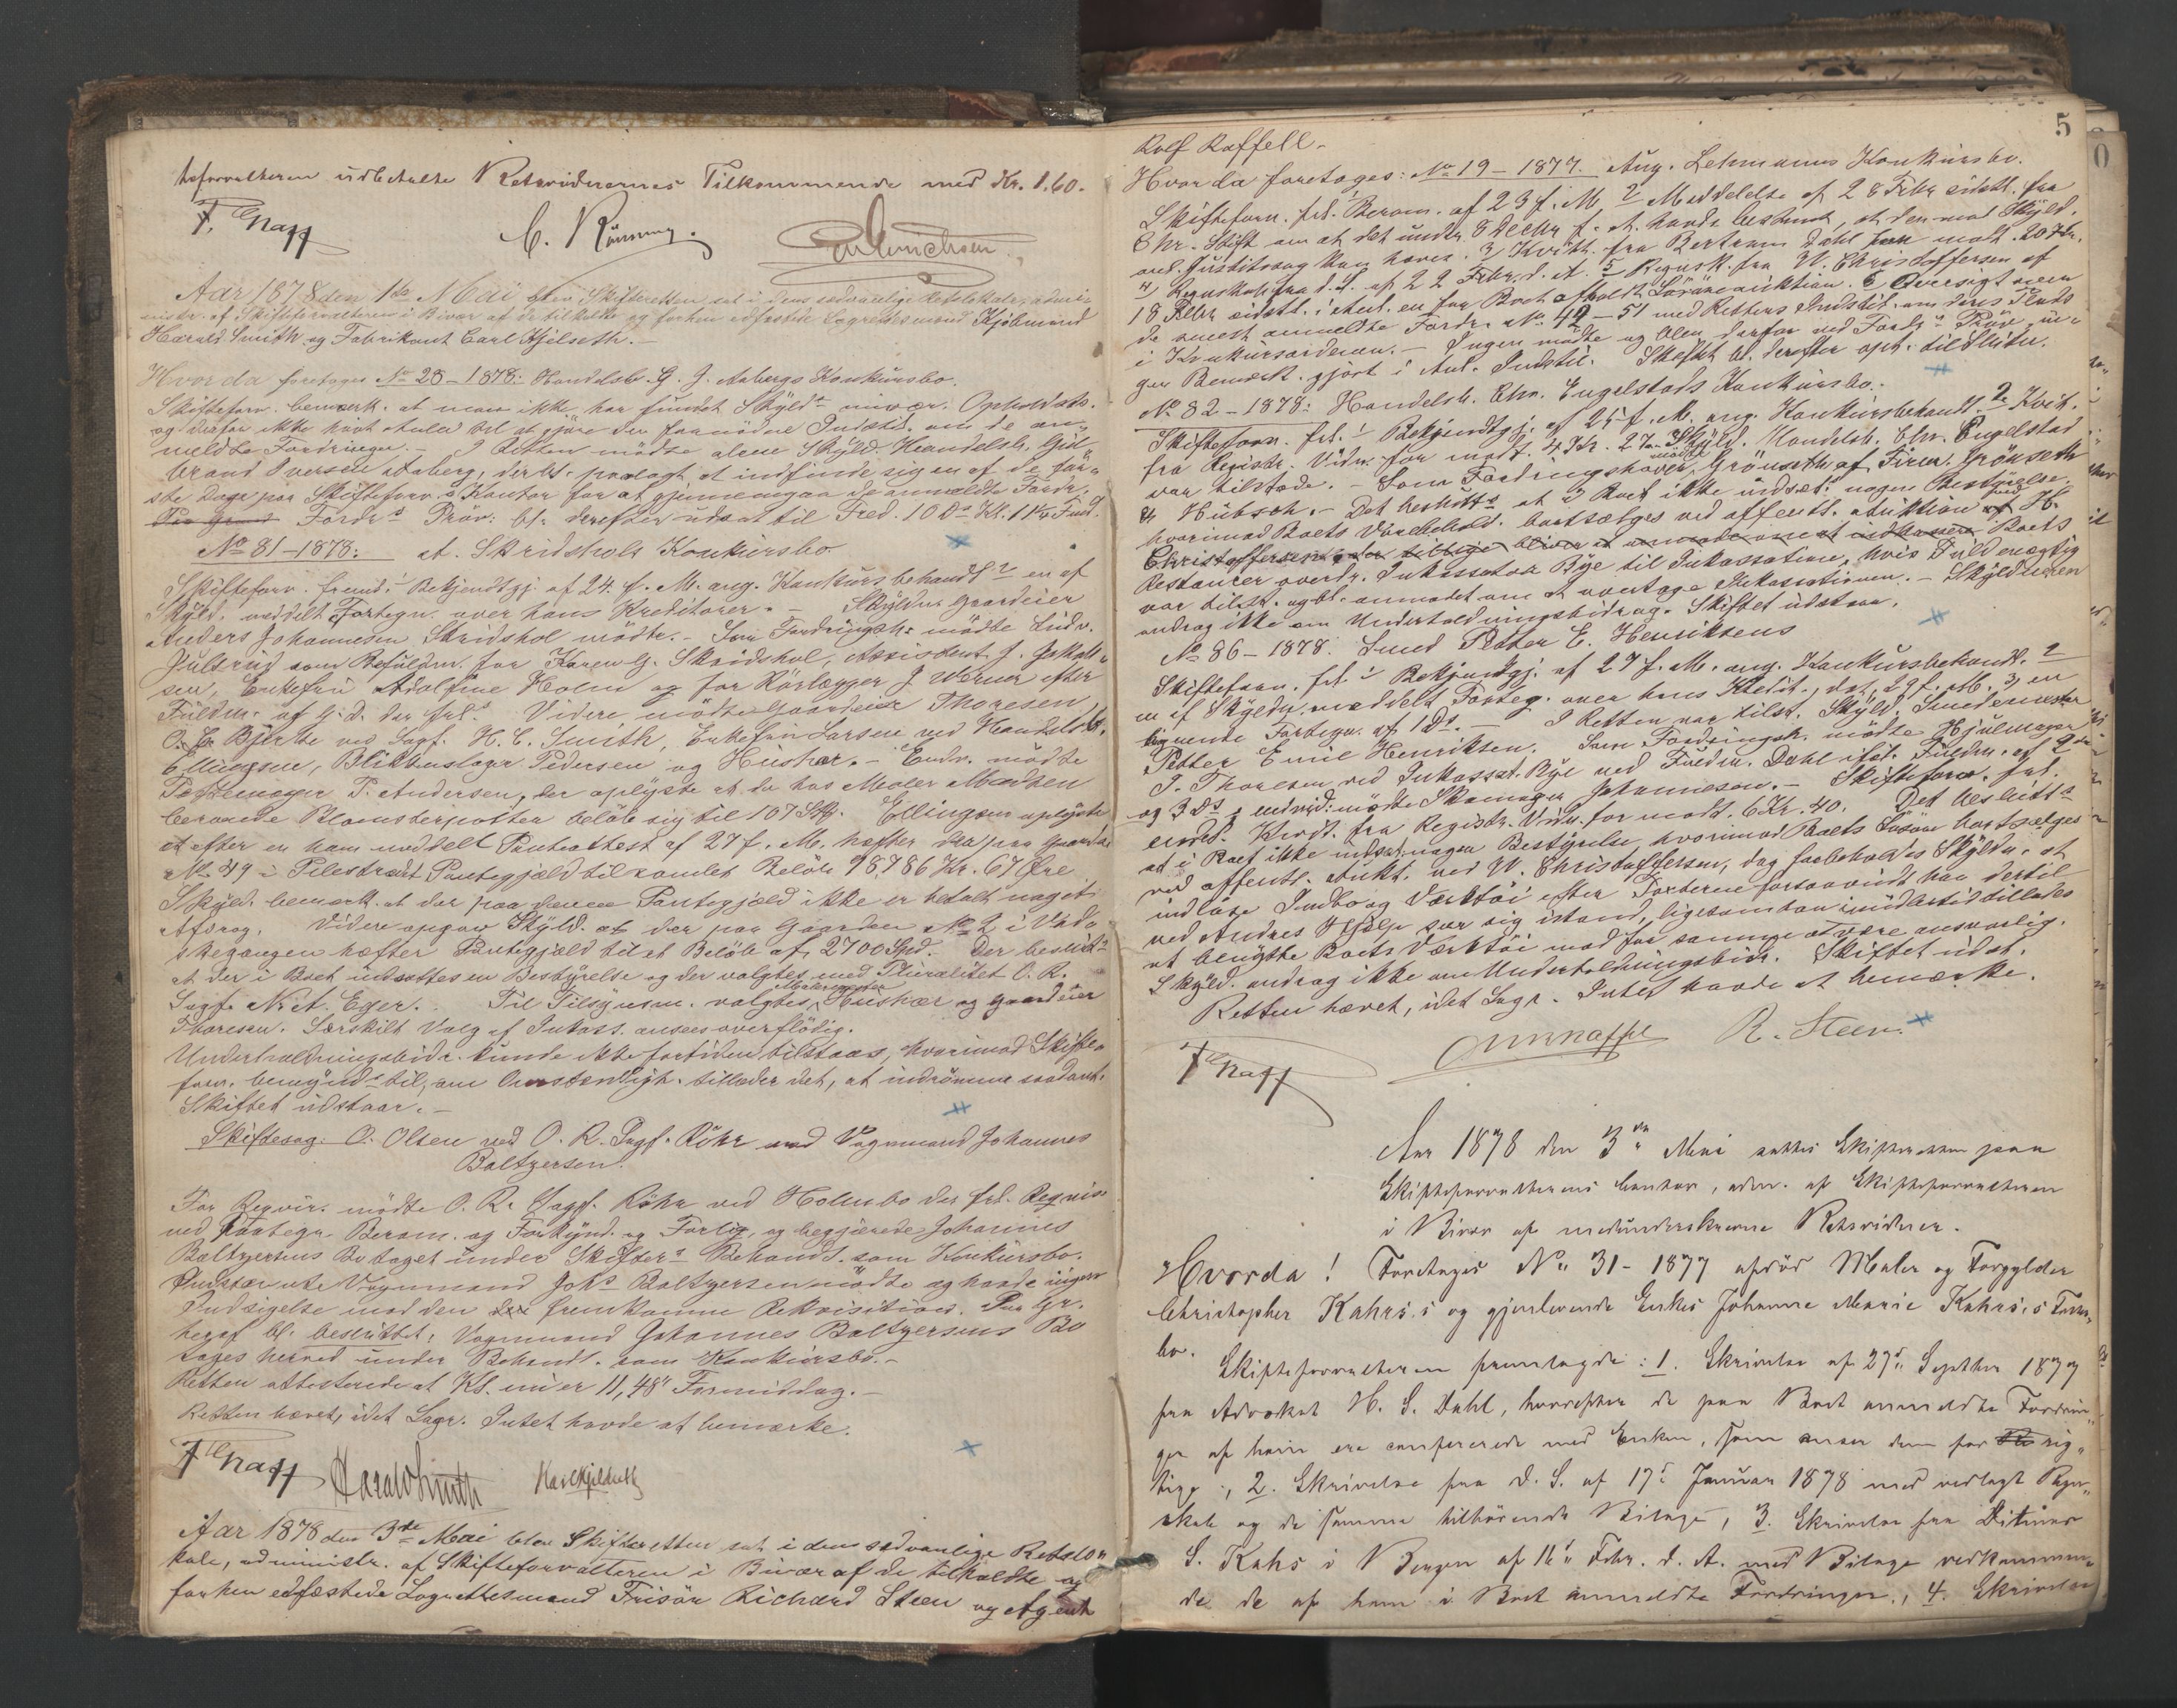 teforvalteren udbetalte Retsvidnernes Tilkommende med Kr. 1.60.
F. Knaff C. Rönning.
Aar 1878 den 1de Mai blev Skifteretten sat i dens sædvanlige Retslokale, admini-
nistr. af Skifteforvalteren i Bivær af de tilkaldte og forhen edfæstede Lagrettesmænd Kjöbmand
Harald Smith og Fabrikant Carl Kjelseth.-
Hvorda foretoges No 28-1878: Handelsb. G. J. Aabergs Konkursbo.
Skifteforv. bemærk. at man ikke har fundet Skyldrs nuvær. Opholdsst.
og derfor ikke havt Anled. til at gjöre den fornödne Indstil. om de an-
meldte Fordringer.- I Retten mödte alene Skyld. Handelsb. Gul-
brand Iversen Aaberg, der bl. paalagt at indfinde sig en af de för-
ste Dage paa Skifteforv.s Kontor for at gjennemgaa de anmeldte Fordr.
Paa Grund Fordrs Pröv. bl. derefter udsat til Fred. 10 Ds Kl. 11 1/4 Form.
No 81-1878: A. Skridshols Konkursbo.
Skifteforv. fremd. 1 Bekjendtgj. af 24 f. M. ang. Konkursbehandl. 2 en af
Skyld. meddelt Fortegn. over hans Kreditorer.- Skyldn. Gaardeier
Anders Johannesen Skridshol mödte.- Som Fordringsh. mödte Ludv.
Julsrud som Befuldm. for Karen G. Skridshol, Assistent J. Jakob-
sen, Enkefru Adolfine Holm og for Rörlægger J. Werner efter
Fuldm. af G. D. der frl. Videre mödte Gaardeier Thoresen
O. E. Bjerke ved Sagf. H. C. Smith, Enkefru Larsen ved Handelsb.
Ellingsen, Blikkenslager Pedersen og Hushær.- Endv. mödte
Pottemager T. Andersen, der oplyste at de hos Maler Madsen
beroende Blomsterpotter belöb sig til 107 Stk. Ellingsen oplyste
at efter en ham meddelt Panteattest af 27 f. M. hefter der paa Gaarden
No 49 i Pilestrædet Pantegjæld til samlet Belöb 78,786 Kr. 67 Öre
Skyld. bemærk. at der paa denne Pantegjæld ikke er betalt noget
Afdrag. Videre opgav Skyld. at der paa Gaarden No 2 i Vada
skegangen hæfter Pantegjæld til et Belöb af 2700 Spd. Der beslutts
at der i Boet indsattes en Bestyrelse og der valgtes med Pluralitet O. R.
Sagf. N. A. Eger. Til Tilsynsm. valgtes Malermester Hushær og Gaardeier
Thoresen. Særskilt Valg af Inkass. ansaaes overflödig.
Underholdningsbidr. kunde ikke fortiden tilstaaes, hvorimod Skifte-
forv. bemynds til, om Omstændigh. tillader det, at indrömme saadant.
Skiftet udstaar.-
Skiftesag: O. Olsen ved O. R. Sagf. Röhr mod Vognmand Johannes
Baltzersen.
For Reqvir. mödte O. R. Sagf. Röhr ved Holmbo der frl. Reqvis.
ved Paategn. Beram. og Forkynd. og Forlig, og begjærede Johannes
Baltzersens Bo taget under Skifters Behandl. som Konkursbo.
Indstævnte Vognmand Johs Baltzersen mödte og havde ingen
Indsigelse mod den fremkomne Rekvisition. Paa Gr.
heraf bl. besluttet: Vognmand Johannes Baltzersens Bo
tages herved under Behandl. som Konkursbo.-
Retten attesterede at Kl. nu er 11,48" Formiddag.-
Retten hævet, idet Lagr. Intet havde at bemærke.
F. Knaff Harald Smith Karl Kjeldseth
Aar 1878 den 3de Mai blev Skifteretten sat i dens sædvanlige Retslo-
kale, administr. af Skifteforvalteren i Bivær af de tilkaldte og
forhen edfæstede Lagrettesmænd Frisör Richard Steen og Agent
5
Rolf Raffell.-
Hvorda foretoges: No 19-1877. Aug. Lehmanns Konkursbo.
Skifteforv. frl. 1 Beram. af 23 f. M. 2 Meddelelse af 28 Febr. sidstl. fra
Chr. Stift om at det under 8 Decbr. f. A. havde bestemt, at den mod Skyld.
anl. Justitssag kan hæves. 3, Kvitt. fra Bertram Dahl for modt. 20 Kr.
4, Regnskab fra d. S. af 22 Febr. d. A. 5 Regnsk. fra W. Christoffersen af
18 Febr. sidstl. i Anl. en for Boet afholdt Lösöreauktion. 6 Oversigt over
de senest anmeldte Fordr. No 49-51 med Rettens Indstil. om deres Plads
i Konkursordenen.- Ingen mödte og blev derfor ved Fordrs Pröv. in-
gen Bemærk. gjört i Anl. Indstil. Skiftet bl. derefter opt. til Slutn.
No 82-1878: Handelsb. Chr. Engelstads Konkursbo.
Skifteforv. frl. 1 Bekjendtgj. af 25 f. M. ang. Konkursbehandl. 2 Kvit.
fra Registr. Vidn. for modt. 4 Kr. 27. Skyld. Handelsb. Chr. Engelstad
var tilstede.- Som Fordringshaver mödte Grönseth af Firm. Grönseth
& Hübsch.- Det beslutts at i Boet ikke indsæt. nogen Bestyrelse,
hvorimod Boets Varebehold. bortsælges ved offentl. Auktion ved H.
Christoffersen, der tillige bliver at anmode om at indkassere Boets
Restancer overdr. Inkassator Bye til Inkassation, hvis Fuldmægtig
var tilst. og bl. anmodet om at overtage Inkassationen.- Skyldneren
androg ikke om Underholdningsbidrag. Skiftet udstaar.
No 86-1878. Smed Petter E. Henriksens
Skifteforv. frl. 1 Bekjendtgj. af 27 f. M. ang. Konkursbehandl. 2
en af Skyldn. meddelt Forteg. over hans Kredit., dat. 29 f. M. 3, en
lignende Fortegn. af 1 Ds.- I Retten var tilst. Skyld. Smedemester
Petter Emil Henriksen. Som Fordringsh. mödte Hjulmager
T. Thoresen ved Inkassat. Bye ved Fuldm. Dahl iföl. Fuldm. af 2den
og 3 Ds, endvid. mödte Skomager Johannesen.- Skifteforv. frl.
endel. Kvit. fra Registr. Vidn. for modt. 6 Kr. 40. Det beslutts
at i Boet ikke indsæt. nogen Bestyrelse, hvorimod Boets Lösöre bortsælges
ved offentl. Aukt. ved W. Christoffersen, dog forbeholdes Skyldn. at
indlöse Indbo og Værktöi efter Taxterne forsaavidt han dertil
ved Andres Hjelp ser sig istand, ligesom han imidlertid tillades
at benytte Boets Værktöi mod for samme at være ansvarlig.
Skyld. androg ikke om Underholdningsbidr. Skiftet udst.
Retten hævet, idet Lagr. Intet havde at bemærke.
F. Knaff R. Steen.
Aar 1878 den 3die Mai sattes Skifteretten paa
Skifteforvalterens Contor, adm. af Skifteforvalteren
i Bivær af medunderskrevne Retsvidner.
Hvorda! Foretoges No 31-1877 afdöd Maler og Forgylder
Christopher Kahrs.s og gjenlevende Enkes Johanne Marie Kahrs.s Fælles-
bo.
Skifteforvalteren fremlagde: 1. Skrivelse af 27d Septbr 1877
fra Advokat H. S. Dahl, hvorefter de paa Boet anmeldte Fordrin-
ger af ham ere confererede med Enken, som anser dem for rig-
tige, 2. Skrivelse fra d. S. af 17d Januar 1878 med vedlagt Regn-
skab og de samme tilhörende Bilage, 3. Skrivelse fra Ditmar
S. Kahs i Bergen af 16d Febr. d. A. med Bilage vedkommen-
de de af ham i Boet anmeldte Fordringer, 4. Skrivelse